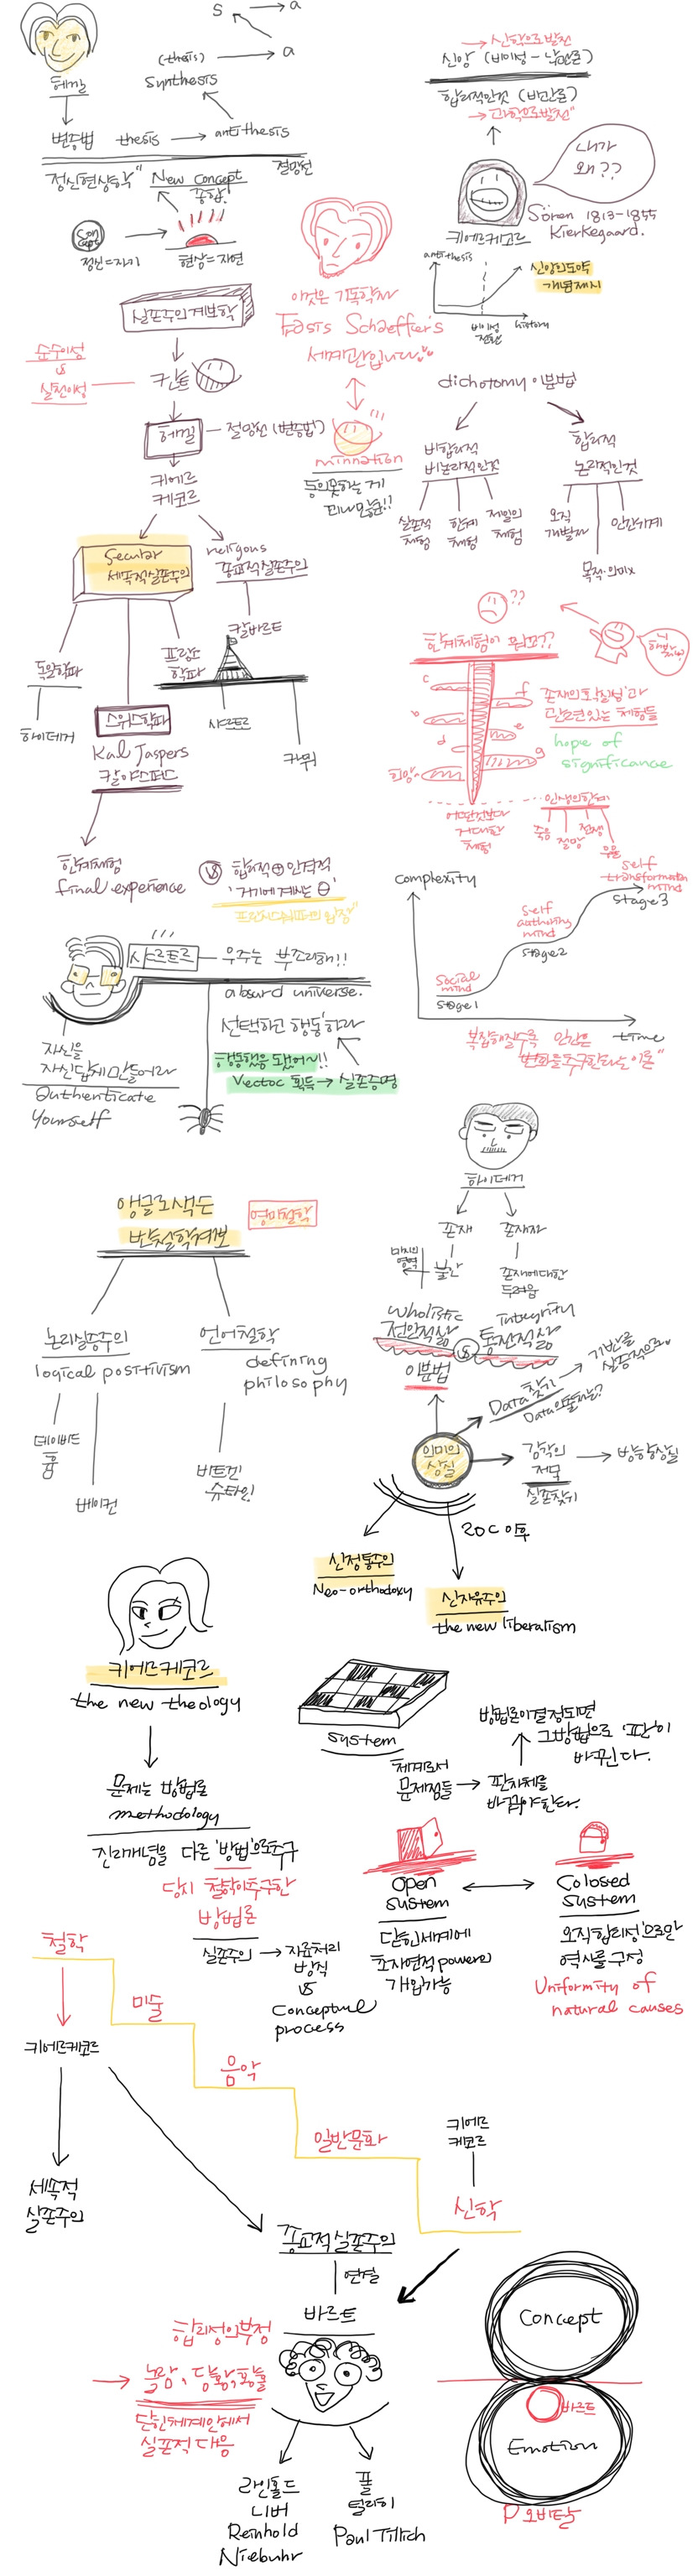 S → a
(thesis) → a
synthesis
헤겔
변증법 thesis → antithesis
절망선
정신현상학" New concept
종합!
Concept
정신=자기
현상=자연
→ 신학으로 발전
신앙 (비이성 - 낙관론)
합리적인것 (비관론)
→ 과학으로발전"
내가
왜??
Sören 1813-1855
Kierkegaard.
키에르케고르
antithesis
신앙의도약
개념제시
비이성
history
이것은 기독학자
Fasis Schaeffer's
세계관입니다
minnation
동의못하는 게
꽤나많음!!
실존주의계보학
순수이성
vs
실천이성
칸트
헤겔 - 절망선 (변증법)
키에르
케코르
Secular
세속적실존주의
religous
종교적실존주의
칼바르트
독일학파
하이데거
스위스학파
Kal Jaspers
칼야스퍼스
프랑스
학파
사르트르
카뮈
한계체험
final experience
VS 합리적 + 인격적
'거기에계시는 θ'
dichotomy 이분법
비합리적
비논리적인것
합리적
논리적인것
실존적
체험
한계
체험
제일의
체험
오직
목적·의미x
인간기계
??
한계체험이 뭔교??
c
b
d
f
e
g
희망
존재의 확실성'과
관련있는 체험들
hope of
significance
어떤것보다
거대한
체험
인생의한계
죽음
절망
전쟁
우울
complexity
Social
mind
stage1
self
authoring
mind
stage2
self
transformation
mind
stage3
time
복잡해질수록 인간은
변화를추구한다는 이론"
사르트르 - 우주는 부조리해!!
absurd universe.
선택하고 행동하라
행동했음 됐어~!!
Vector 획득 → 실존증명
자신을
자신답게만들어라
authenticate
Yourself
하이데거
존재
존재자
불안
미지의
영역
존재에대한
두려움
wholistic
전인적삶
vs
integrity
통전적삶
이분법
Data찾기
기반을
실증적으로.
의미의
상실
감각의
실존찾기
방향상실
20C 이후
신정통주의
Neo-orthodoxy
신자유주의
the new liberatism
앵글로색슨
반족철학계보
영미철학
논리실증주의
logical positivism
언어철학
defining
philosophy
데이비드
흄
베이컨
비트겐
슈타인
키에르케코르
the new theology
문제는 방법론
methodology
진리개념을 다른 '방법'으로추구
당시 철학이추구한
방법론
실존주의 → 자료처리
방식
vs
Conceptual
process
system
체계로서
문제점들 → 판자체를
바꿔야한다.
방법론이결정되면
그방법으로 '판'이
바뀐다.
open
system
닫힌세계에
초자연적power의
개입가능
Colosed
System
오직합리성'으로만
역사를구성
Uniformity of
natural causes
철학
미술
음악
일반문화
신학
키에르케코르
키에르
케코르
세속적
실존주의
종교적실존주의
연결
바르트
합리성의부정
→ 놀람, 당황,황홀
닫힌체계안에서
실존적 대응
라인홀드
니버
Reinhold
Niebuhr
폴
틸리히
Paul Tillich
Concept
바르트
Emotion
P오비탈